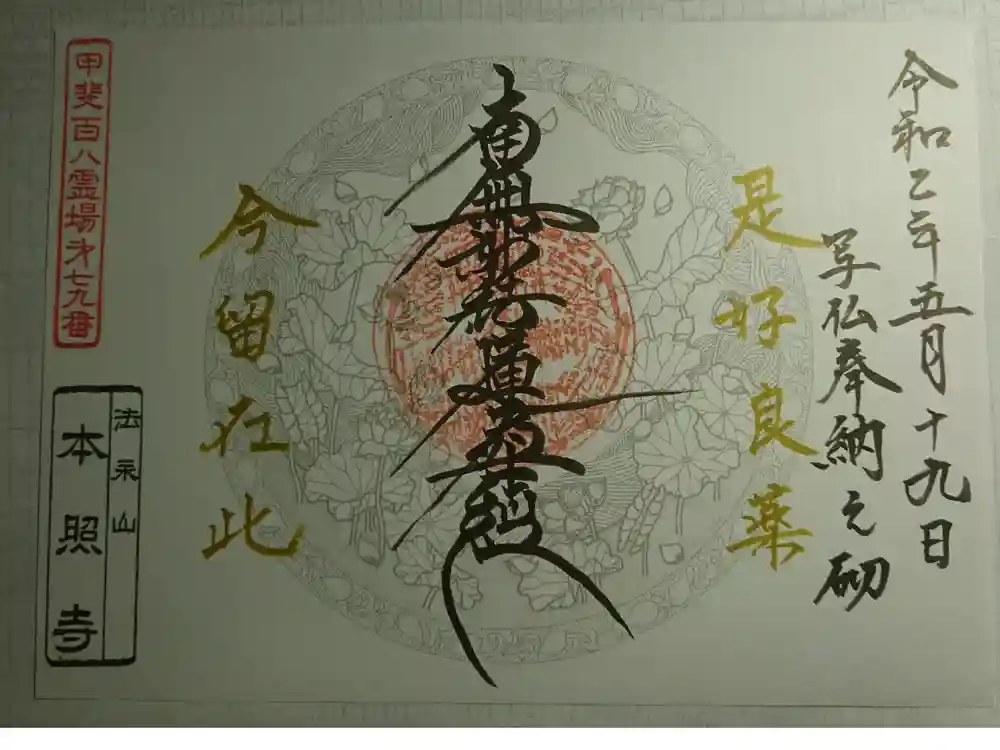 令和二年五月十九日
写仏奉納之砌
是好良薬
南無妙法蓮華経
今留在此
甲斐百八霊場才七九番
法永山
本照寺